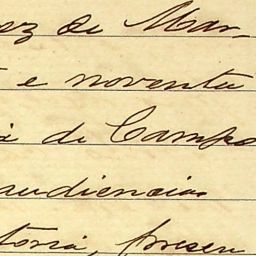 oz de Mar-
e noventa
a de Campo
audiencia
toria, presen